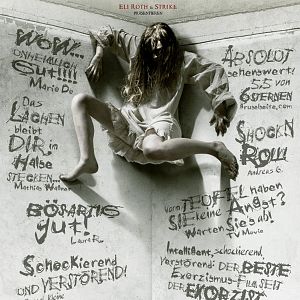 ELI ROTH & STRIKE
PRÄSENTIEREN
WOW...
UNHEIMLICH
Gut!!!!
Mario Do
Das
LACHEN
bleibt
DIR im
Halse
STECKEN...
Mathias Wallner
BÖSARTIG
gut!
Laura R.
Schockierend
UND VERSTÖREND!
ABSOLUT
sehenswert!
5,5 von
6 STERNEN
Gruselseite.com
SHOCK N
ROLL
Andreas G.
Vorm TEUFEL haben
SIE keine Angst?
Warten Sie ab!
TV Movie
Intelligent, schockierend,
verstörend: DER BESTE
Exorzismus-FILM SEIT
DER EXORZIST